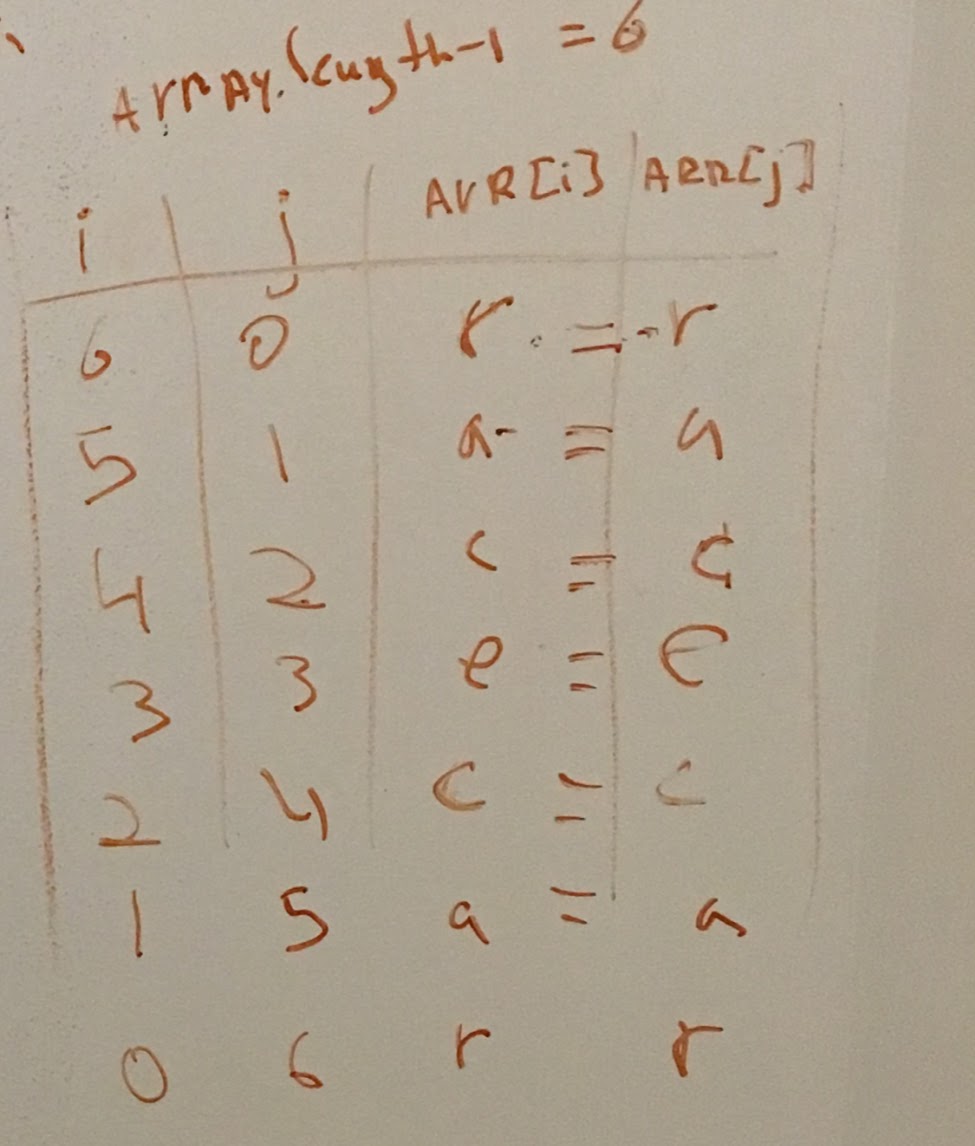 Array.length-1 = 6
i j ARR[i] ARR[j]
6 0 r = r
5 1 a = a
4 2 c = c
3 3 e = e
2 4 c = c
1 5 a = a
0 6 r r